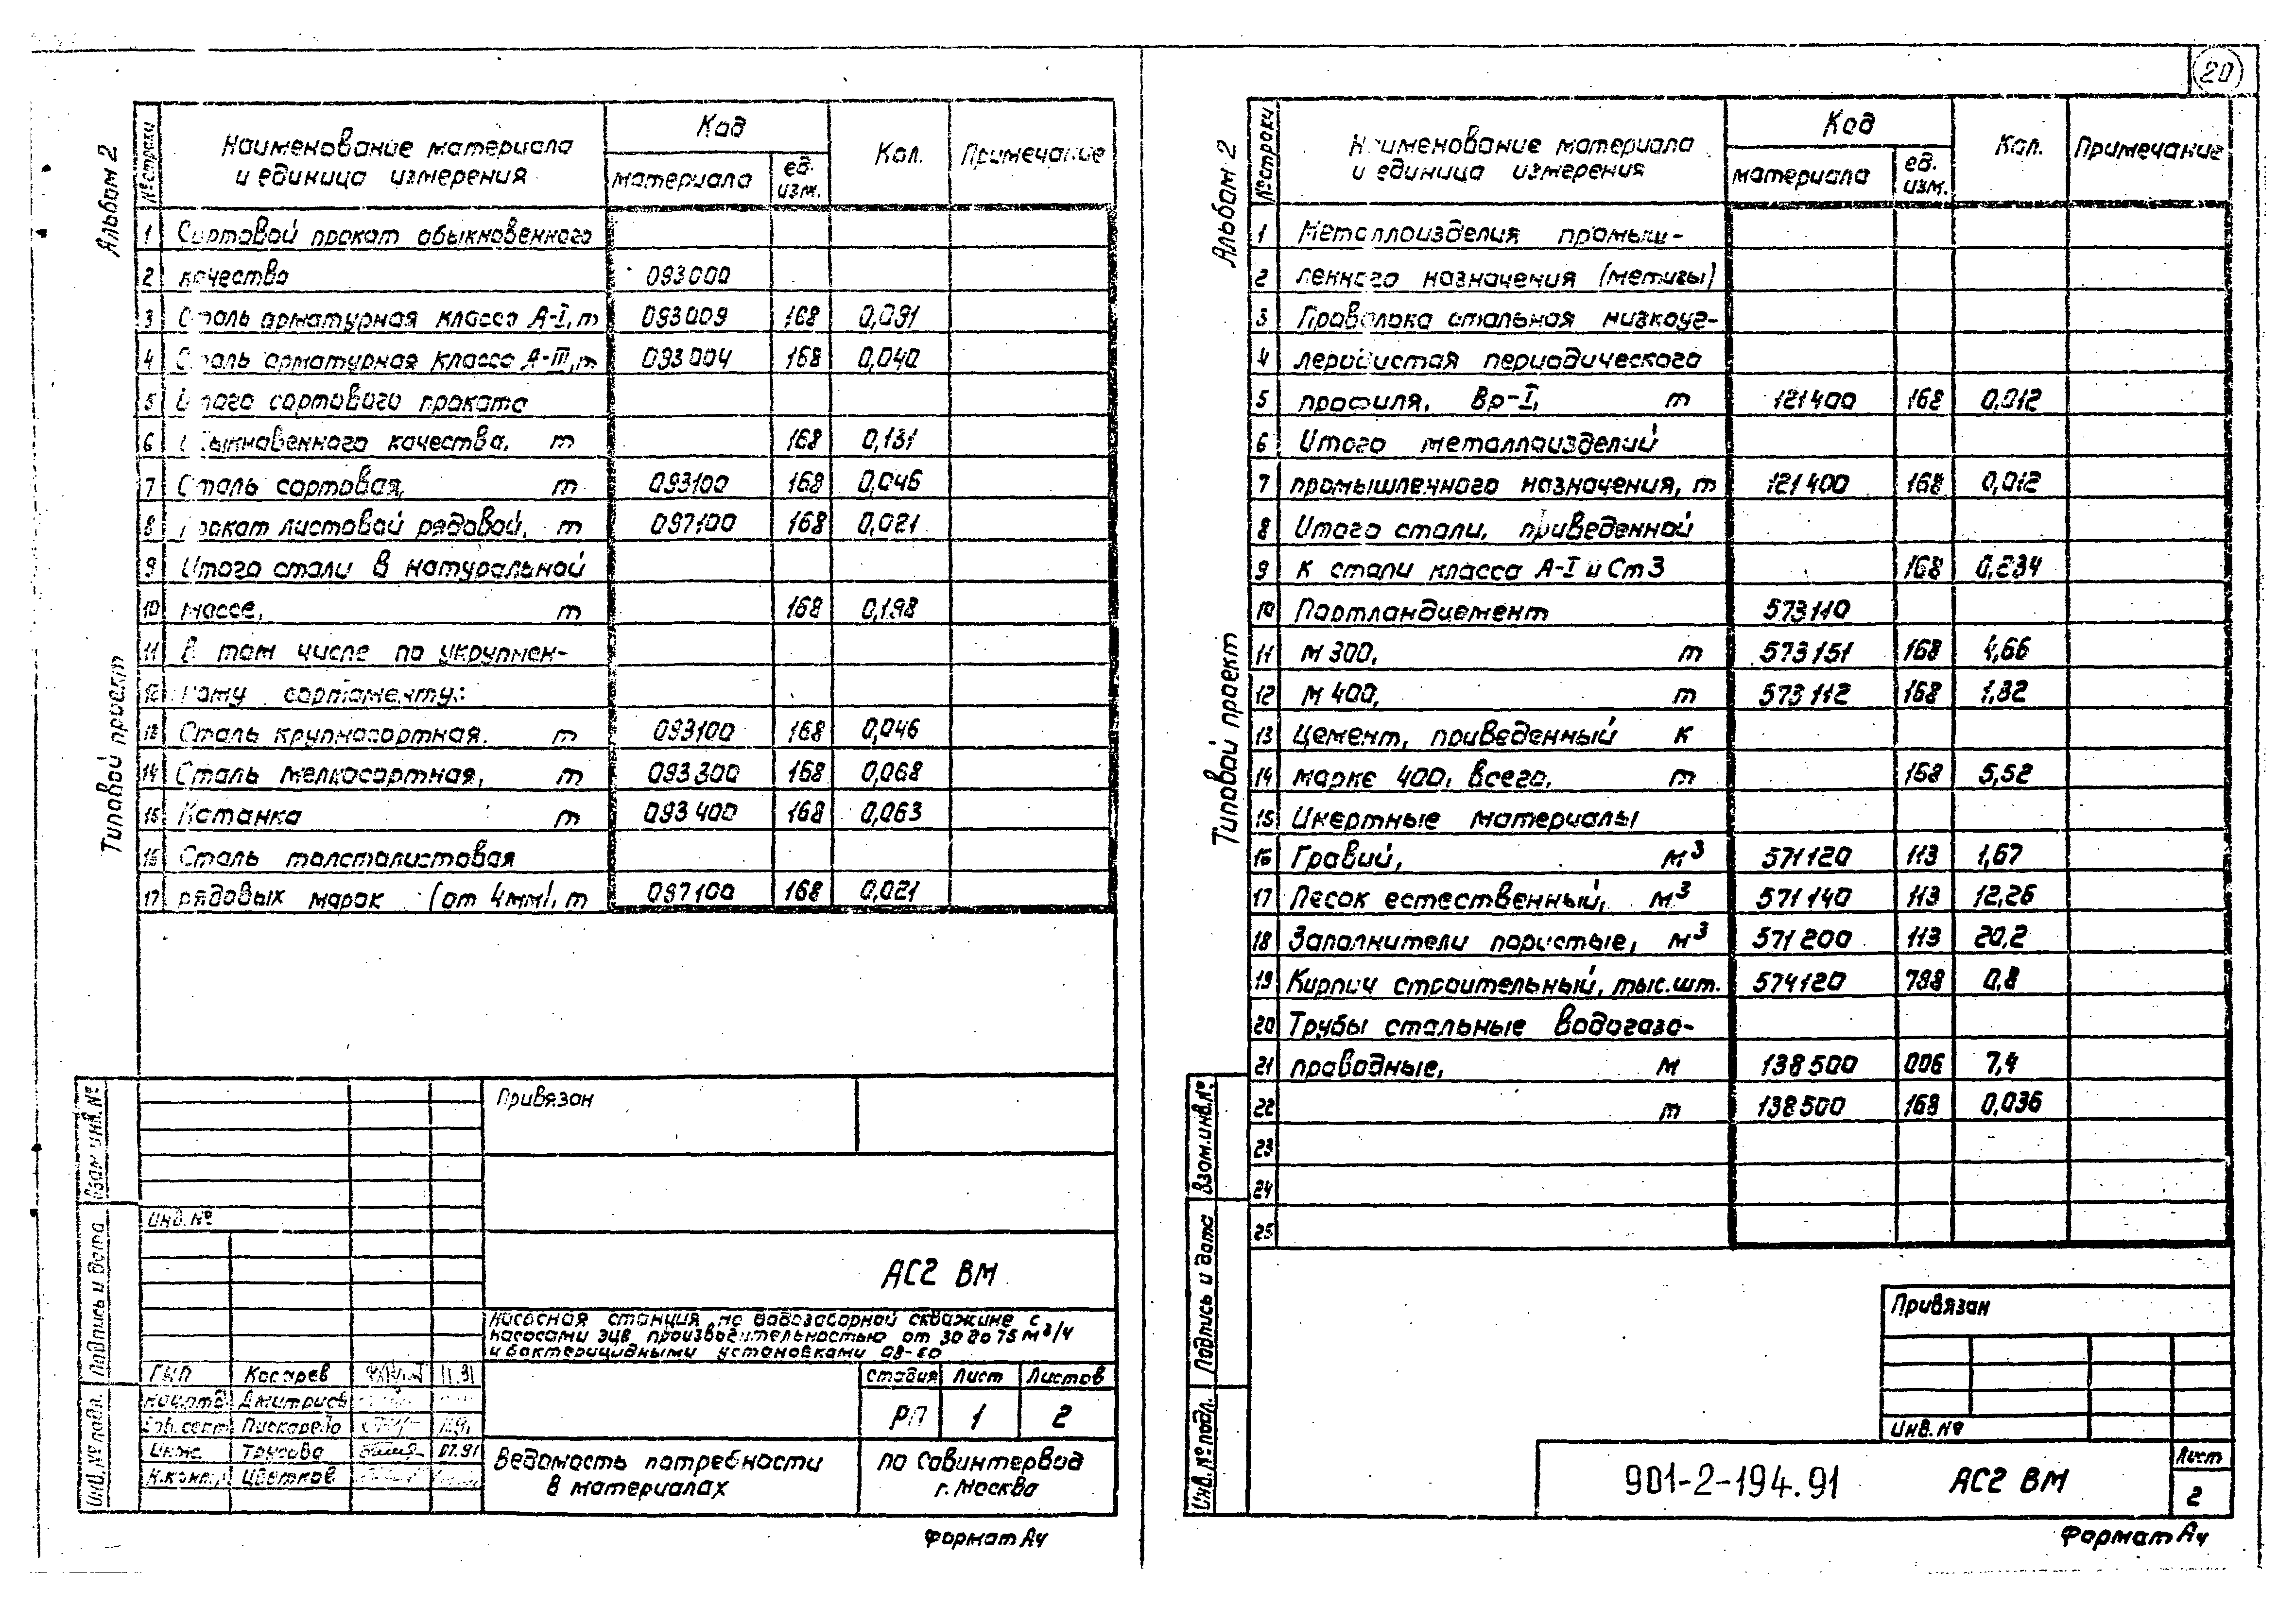 20
Альбом 2
Типовой проект
№ строки Наименование материала и единица измерения Код материала ед. изм. Кол. Примечание
1 Сортовой прокат обыкновенного
2 качества 093000
3 Сталь арматурная класса А-I, т 093009 168 0,091
4 Сталь арматурная класса А-III, т 093004 168 0,040
5 Итого сортового проката
6 обыкновенного качества, т 168 0,131
7 Сталь сортовая, т 093100 168 0,046
8 Прокат листовой рядовой, т 097100 168 0,021
9 Итого стали в натуральной
10 массе, т 168 0,198
11 В том числе по укрупнен-
12 ному сортаменту:
13 Сталь крупносортная, т 093100 168 0,046
14 Сталь мелкосортная, т 093300 168 0,068
15 Катанка т 093400 168 0,063
16 Сталь толстолистовая
17 рядовых марок (от 4мм), т 097100 168 0,021
Взам. инв. №
Подпись и дата
Инв. № подл.
Привязан
Инв. №
АС2 ВМ
Насосная станция на водозаборной скважине с
насосами ЭЦВ производительностью от 30 до 75 м³/ч
и бактерицидными установками
ГИП Косарев 11.91
Нач.отд Дмитриев
Зав. сект Пискарева
Инж. Трусова 07.91
Н.контр Цветков
стадия Лист Листов
РП 1 2
Ведомость потребности
в материалах
по Совинтервод
г. Москва
Формат А4
Альбом 2
Типовой проект
№ строки Наименование материала и единица измерения Код материала ед. изм. Кол. Примечание
1 Металлоизделия промыш-
2 ленного назначения (метизы)
3 Проволока стальная низкоуг-
4 леродистая периодического
5 профиля, Вр-I, т 121400 168 0,012
6 Итого металлоизделий
7 промышленного назначения, т 121400 168 0,012
8 Итого стали, приведенной
9 к стали класса А-I и Ст3 168 0,234
10 Портландцемент 573110
11 М 300, т 573151 168 4,66
12 М 400, т 573112 168 1,32
13 Цемент, приведенный к
14 марке 400, всего, т 168 5,52
15 Инертные материалы
16 Гравий, м³ 571120 113 1,67
17 Песок естественный, м³ 571140 113 12,26
18 Заполнители пористые, м³ 571200 113 20,2
19 Кирпич строительный, тыс.шт. 574120 798 0,8
20 Трубы стальные водогазо-
21 проводные, м 138500 006 7,4
22 т 138500 168 0,036
23
24
25
Взам.инв.№
Подпись и дата
Инв. № подл.
Привязан
Инв. №
901-2-194.91 АС2 ВМ
Лист
2
Формат А4